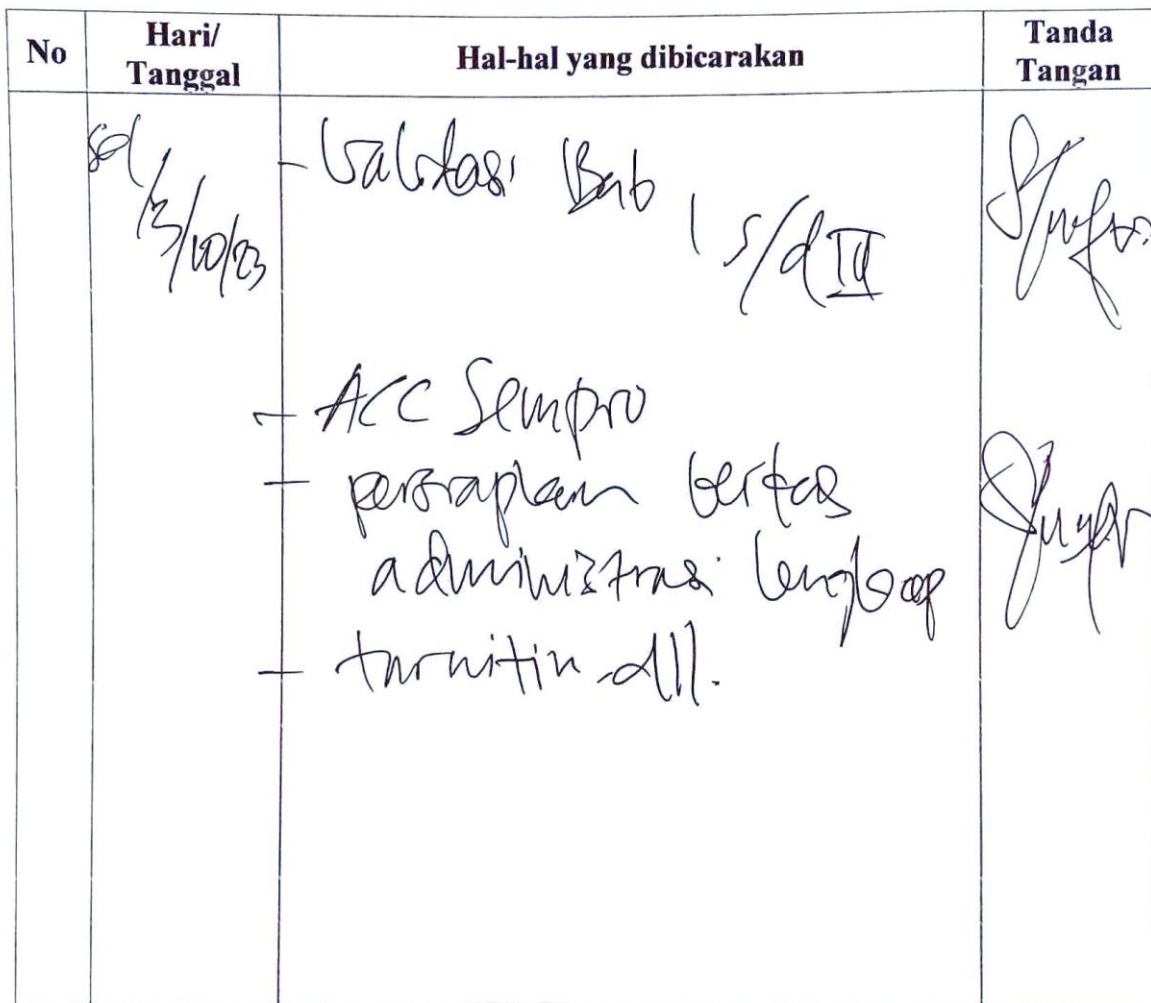 No
Hari/
Tanggal
Hal-hal yang dibicarakan
Tanda
Tangan
Sel
/3/10/23
- Validasi Bab
I s/d
- ACC Sempro
- persiapkan berkas
administrasi lengkap
- turnitin dll.